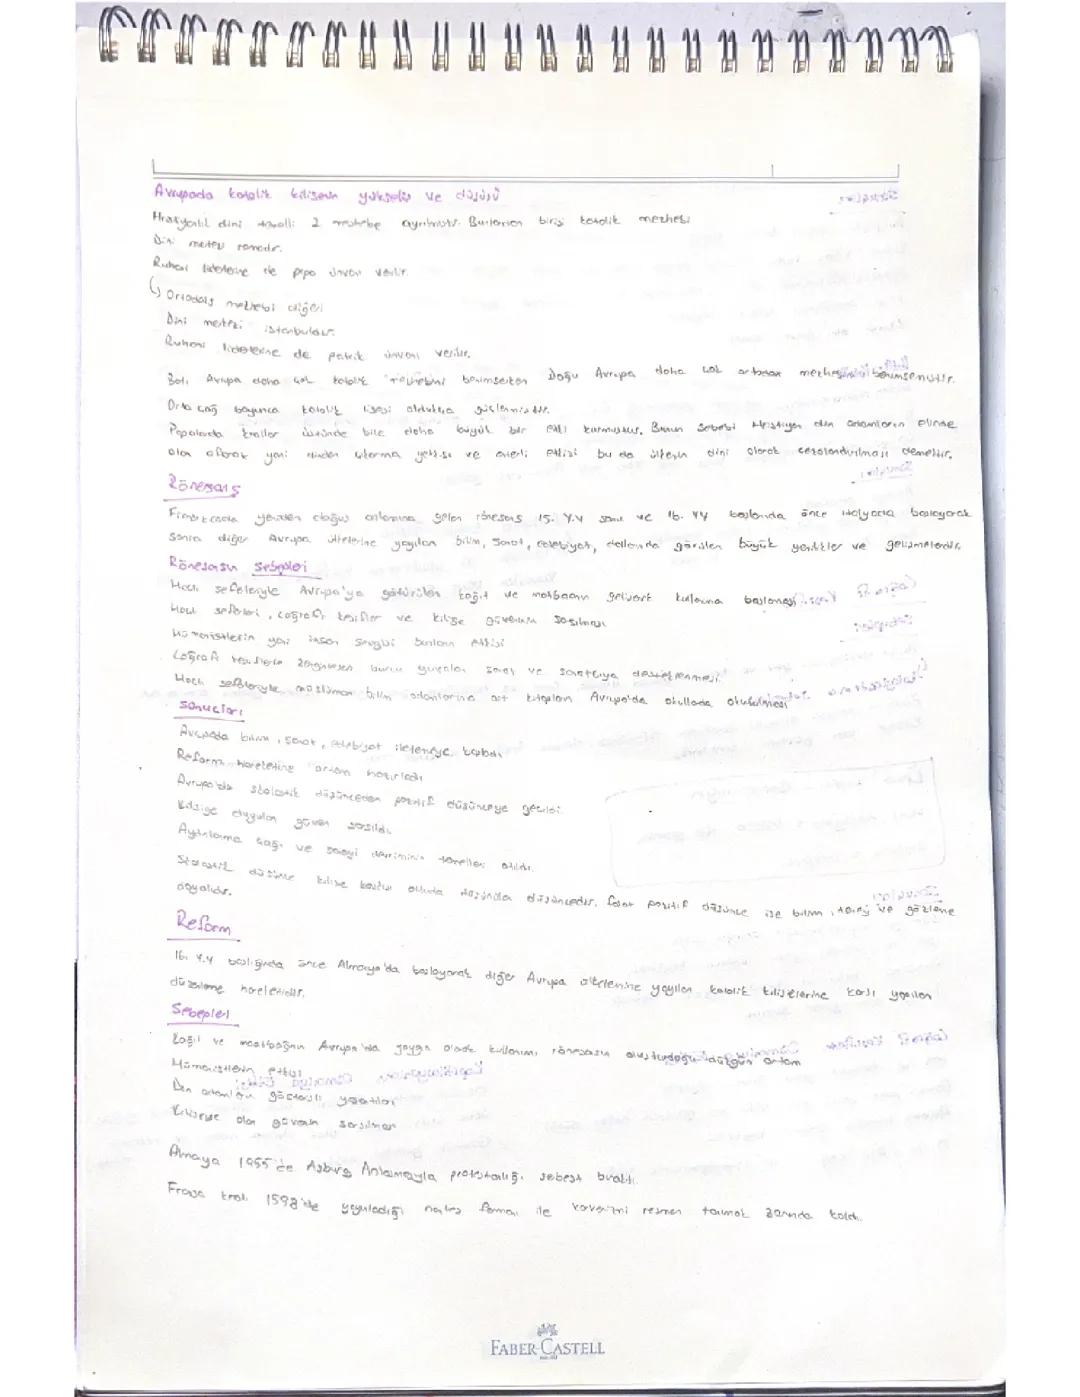 Avrupada katolik kilisenin yükseliş ve düşüşü
Hristiyanlık dini temelli 2 mezhebe ayrılmıştır. Bunlardan birisi katolik mezhebi
Dini merkezi romadır.
Ruhani liderlerine de papa ünvanı verilir.
Ortadoks mezhebi diğeri
Dini merkezi istanbuldur.
Ruhani liderlerine de patrik ünvanı verilir.
Batı Avrupa daha çok katolik mezhebini benimserken Doğu Avrupa daha çok ortadox mezhebini benimsemiştir.
Orta çağ boyunca katolik oldukça güçlenmiştir.
Papalarda krallar üstünde bile daha büyük bir etki kurmuştur. Bunun sebebi Hristiyan din adamların elinde
olan aforoz yani dinden çıkarma yetkisi ve enterli etkisi bu da ülkenin dini olarak cezalandırılması demektir.
Rönesans
Fransızcada yeniden doğuş anlamına gelen rönesans 15. Y.Y sonu ve 16. YY başlarında önce italyada başlayarak
sonra diğer Avrupa ülkelerine yayılan bilim, sanat, edebiyat, dallarında görülen büyük yenilikler ve gelişmelerdir.
Rönesasın Sebepleri
Haçlı seferleriyle Avrupa'ya götürülen kağıt ve matbaanın gelişerek kullanıma başlanması
Haçlı seferleri, coğrafi keşifler ve kilise güvenin sarsılması
Hümanistlerin yani insan sevgisi bunların etkisi
Coğrafi keşiflerle zenginleşen burcu sanat ve sanatçıya desteklenmesi
Haçlı seferleriyle müslüman bilim adamlarına ait kitapların Avrupa'da okullarda okutulması
Sonuçları
Avrupada bilim, sanat, edebiyat ilerlemeye başladı
Reform hareketine ortam hazırladı
Avrupa'da skolastik düşünceden pozitif düşünceye geçildi
Kiliseye duyulan güven sarsıldı.
Aydınlanma çağı ve sanayi devriminin temelleri atıldı.
Skolastik düşünce kilise baskısı altında düşüncedir. fakat pozitif düşünce ise bilim, deney ve gözleme
dayalıdır.
Reform
16. Y.Y başlığında önce Almanya'da başlayarak diğer Avrupa ülkelerine yayılan katolik kiliselerine karşı yapılan
düzenleme hareketidir.
Sebepleri
Kağıt ve matbaanın Avrupa'da yaygın olarak kullanımı, rönesasın oluşturduğu düzgün ortam
Hümanistlerin etkisi
Din adamların gösterişli yaşantıları
Kiliseye olan güvenin sarsılması
Almaya 1955'de Asburg Anlaşmayla protestanlığı sebest bıraktı.
Frasa kralı 1598'de yayınladığı fermanı ile resmen tanımak zorunda kaldı.
FABER-CASTELL